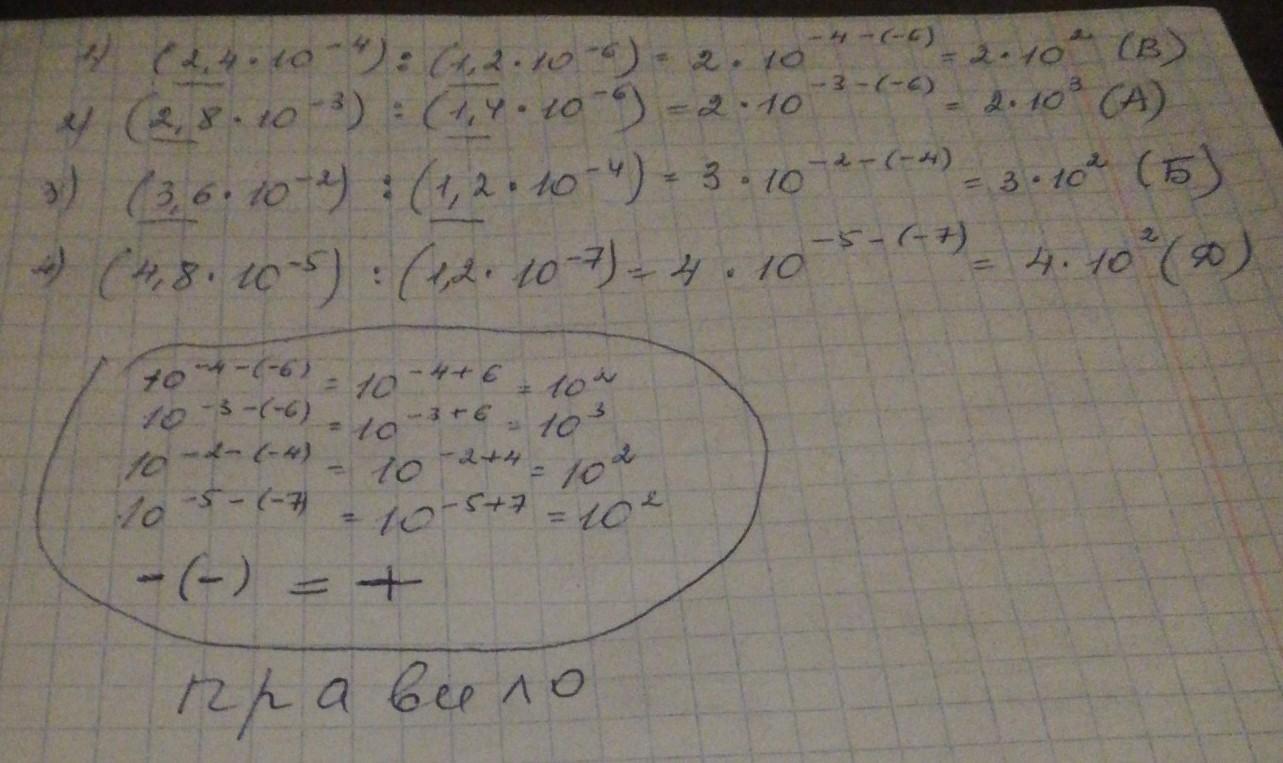 1) (2,4·10⁻⁴) : (1,2·10⁻⁶) = 2·10⁻⁴⁻⁽⁻⁶⁾ = 2·10² (В)
2) (2,8·10⁻³) : (1,4·10⁻⁶) = 2·10⁻³⁻⁽⁻⁶⁾ = 2·10³ (А)
3) (3,6·10⁻²) : (1,2·10⁻⁴) = 3·10⁻²⁻⁽⁻⁴⁾ = 3·10² (Б)
4) (4,8·10⁻⁵) : (1,2·10⁻⁷) = 4·10⁻⁵⁻⁽⁻⁷⁾ = 4·10² (Д)
10⁻⁴⁻⁽⁻⁶⁾ = 10⁻⁴⁺⁶ = 10²
10⁻³⁻⁽⁻⁶⁾ = 10⁻³⁺⁶ = 10³
10⁻²⁻⁽⁻⁴⁾ = 10⁻²⁺⁴ = 10²
10⁻⁵⁻⁽⁻⁷⁾ = 10⁻⁵⁺⁷ = 10²
-(-) = +
правило